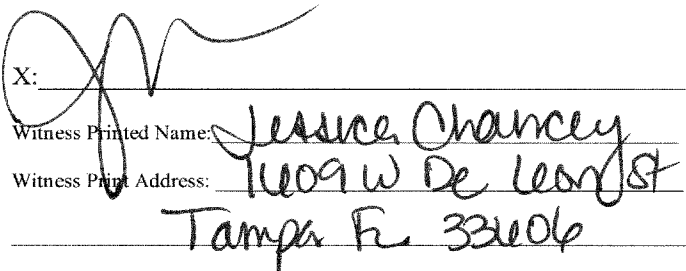 X:
Witness Printed Name: Jessica Chancey
Witness Print Address: 1609 W De Leon St
Tampa FL 33606